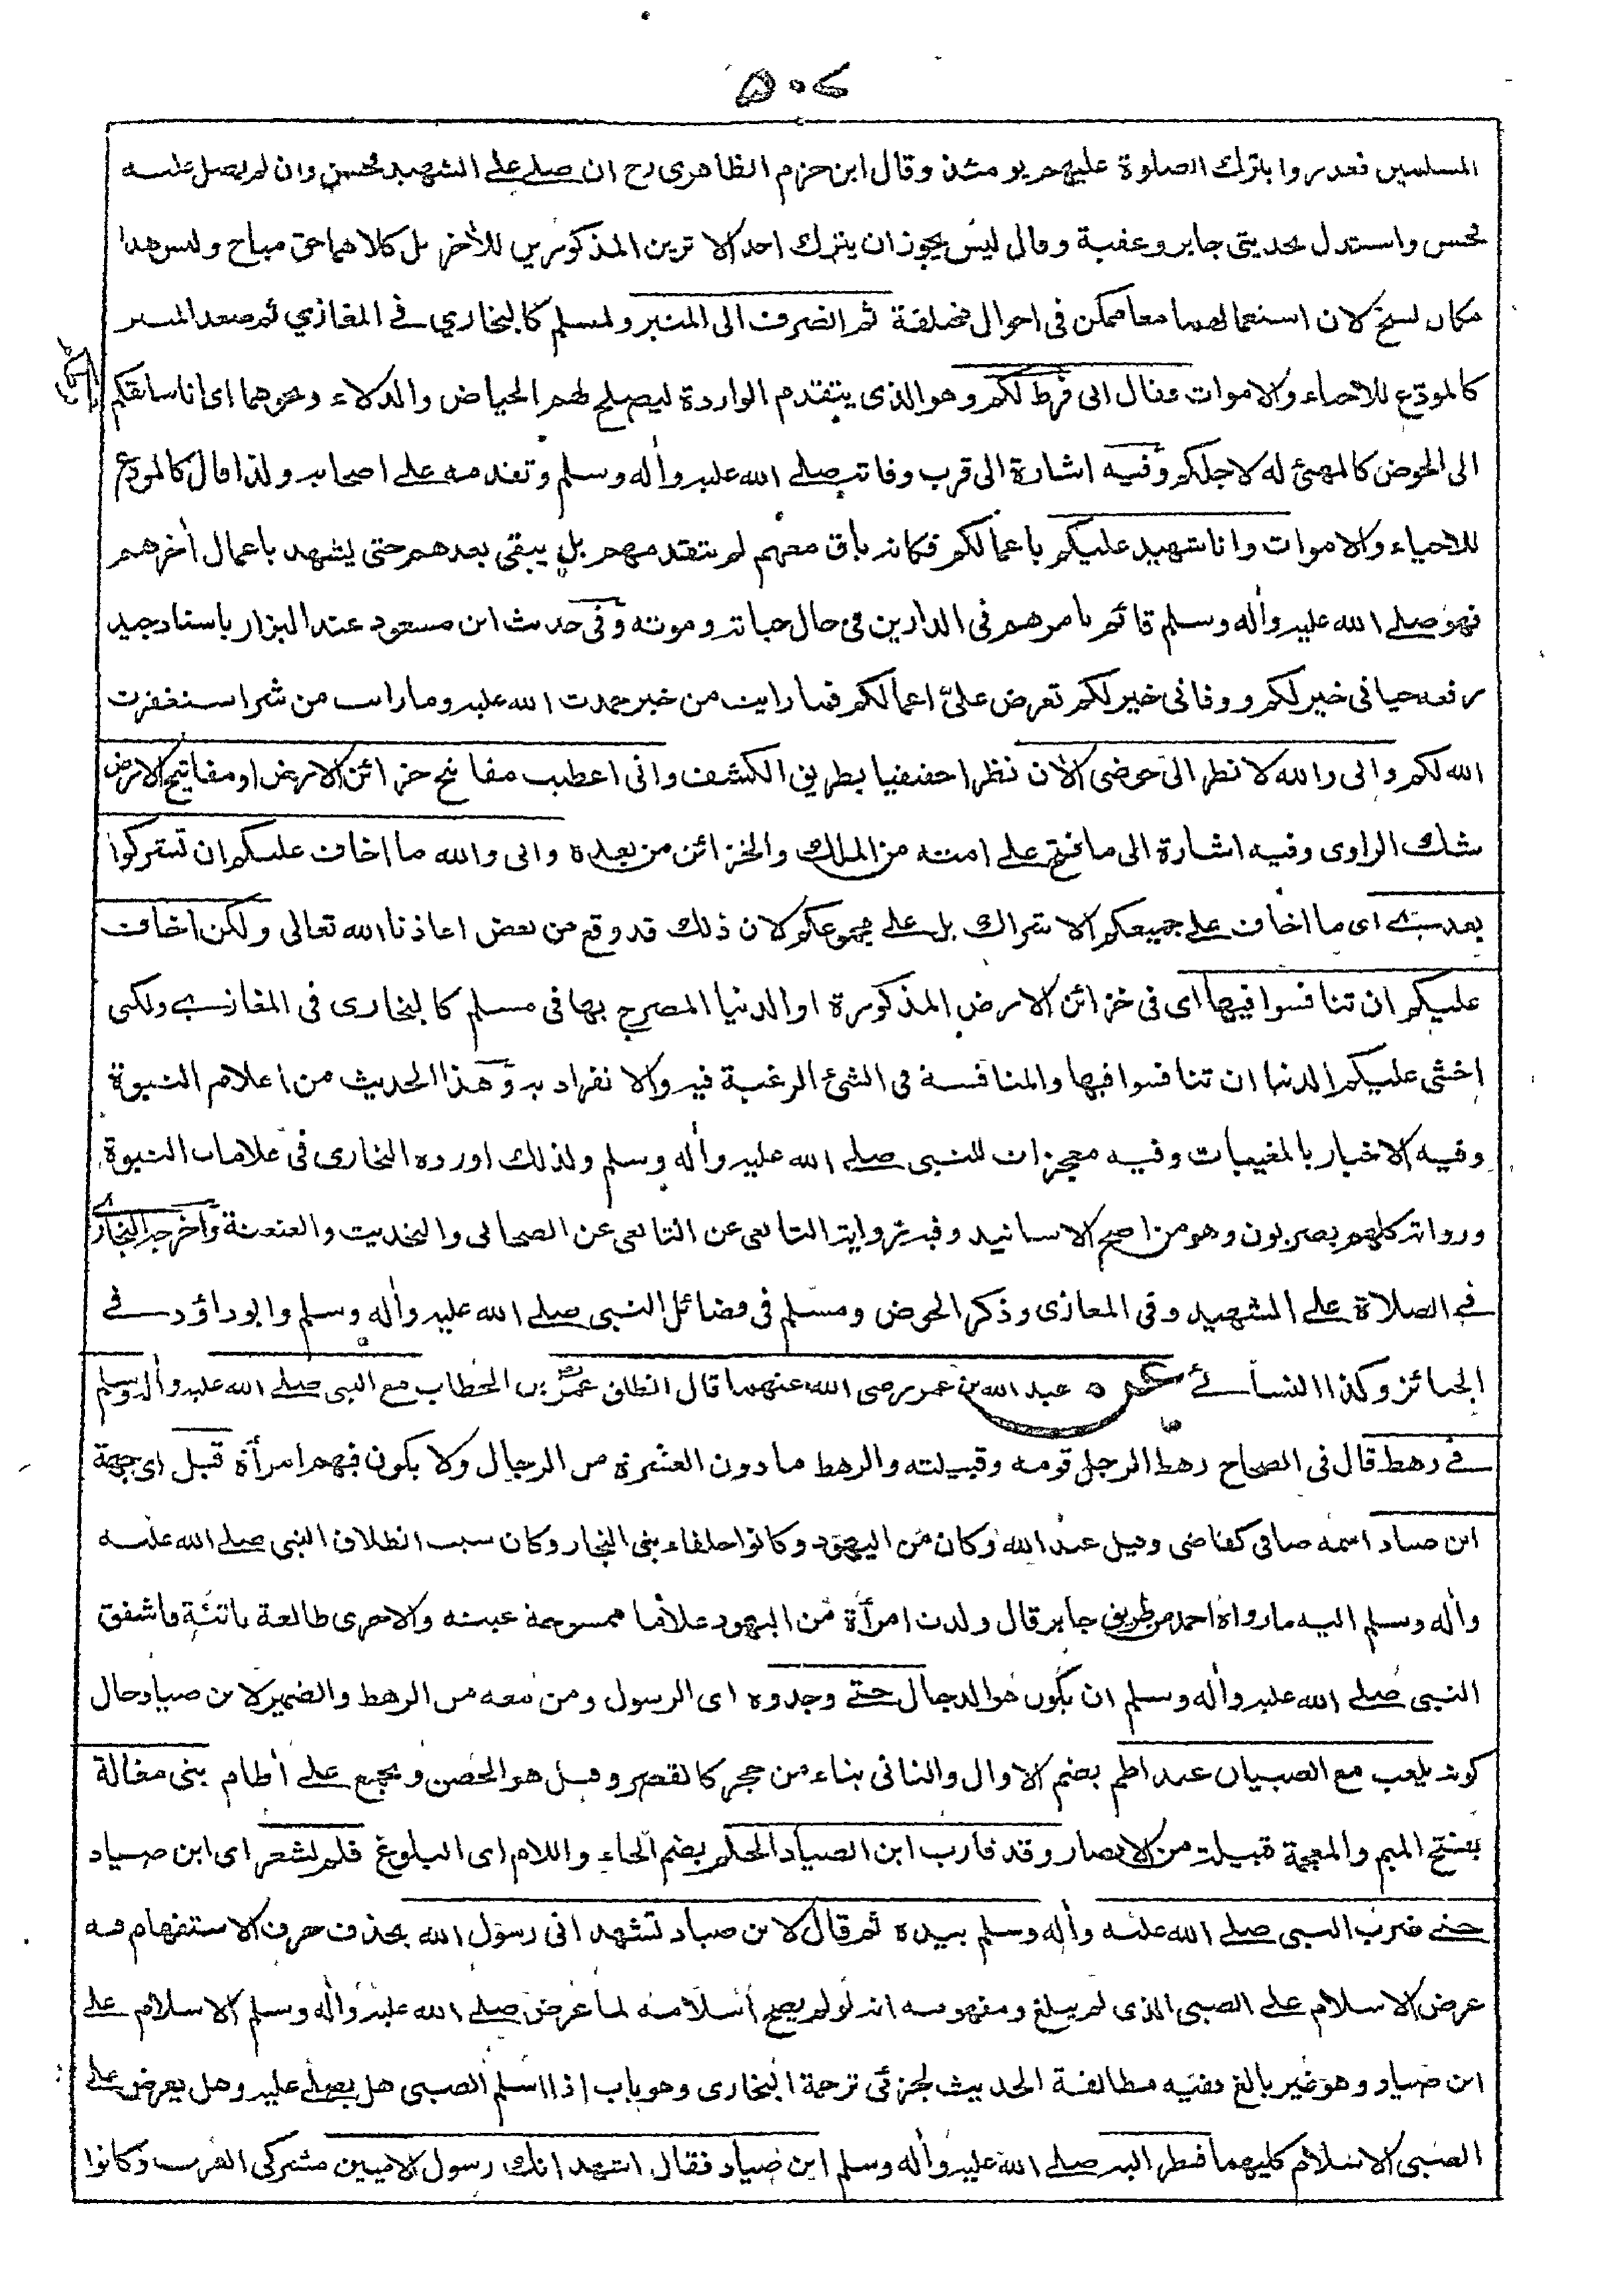 ۵۰۷
المسلمين فعدروا بترك الصلوة عليهم يومئذ وقال ابن حزم الظاهرى رح ان صلے علے الشهيد فحسن وان لم يصل عليه
فحسن واستدل بحديثى جابر وعقبة وقال ليس يجوز ان يترك احد الاثرين المذكورين للأخر بل كلاهما حق مباح وليس هذا
مكان نسخ لان استعمالهما معا ممكن فى احوال مختلفة ثم انصرف الى المنبر ولمسلم كالبخاري فے المغازي ثم صعد المنبر
كالمودّع للاحياء والاموات فقال انى فرط لكم وهو الذى يتقدم الواردة ليصلح لهم الحياض والدلاء ونحوهما اى انا سابقكم
الى الحوض كالمهيئ له لاجلكم وفيه اشارة الى قرب وفاته صلے الله عليه وأله وسلم وتقدمه علے اصحابه ولذا قال كالمودع
للاحياء والاموات وانا شهيد عليكم باعمالكم فكانه باق معهم لم يتقدمهم بل يبقى بعدهم حتى يشهد باعمال أخرهم
فهو صلے الله عليه وأله وسلم قائم بامرهم فى الدارين فى حال حياته وموته وفى حديث ابن مسعود عند البزار باسناد جيد
رفعه حياتى خير لكم ووفاتى خير لكم تعرض علىّ اعمالكم فما رايت من خير حمدت الله عليه وما رايت من شر استغفرت
الله لكم وانى والله لانظر الى حوضى الأن نظرا حقيقيا بطريق الكشف وانى اعطيت مفاتيح خزائن الارض او مفاتيح الارض
شك الراوى وفيه اشارة الى ما فتح علے امته من الملك والخزائن من بعده وانى والله ما اخاف عليكم ان تشركوا
بعدى اى ما اخاف علے جميعكم الاشراك بل علے مجموعكم لان ذلك قد وقع من بعض اعاذنا الله تعالى ولكن اخاف
عليكم ان تنافسوا فيها اى فى خزائن الارض المذكورة او الدنيا المصرح بها فى مسلم كالبخارى فى المغازے ولكنى
اخشى عليكم الدنيا ان تنافسوا فيها والمنافسة فى الشئ الرغبة فيه والانفراد به وهذا الحديث من اعلام النبوة
وفيه الاخبار بالمغيبات وفيه معجزات للنبى صلے الله عليه وأله وسلم ولذلك اورده البخارى فى علامات النبوة
ورواته كلهم بصريون وهو من اصح الاسانيد وفيه رواية التابعى عن التابعى عن الصحابى والتحديث والعنعنة واخرجه البخارى
فے الصلاة علے الشهيد وفى المغازى وذكر الحوض ومسلم فى فضائل النبى صلے الله عليه وأله وسلم وابوداؤد فے
الجنائز وكذا النسائے عن عبد الله بن عمر رضى الله عنهما قال انطلق عمر بن الخطاب مع النبى صلے الله عليه وأله وسلم
فے رهط قال فى الصحاح رهط الرجل قومه وقبيلته والرهط ما دون العشرة من الرجال ولا يكون فيهم امرأة قبل اى جهة
ابن صياد اسمه صافى كقاضى وقيل عبد الله وكان من اليهود وكانوا حلفاء بنى النجار وكان سبب انطلاق النبى صلے الله عليه
وأله وسلم اليه ما رواه احمد من طريق جابر قال ولدت امرأة من اليهود غلاما ممسوحة عينه والاخرى طالعة ناتئة فاشفق
النبى صلے الله عليه وأله وسلم ان يكون هو الدجال حتے وجدوه اى الرسول ومن معه من الرهط والضمير لابن صياد حال
كونه يلعب مع الصبيان عند اطم بضم الاول والثانى بناء من حجر كالقصر وقيل هو الحصن ويجمع علے أطام بنى مغالة
بفتح الميم والمعجمة قبيلة من الانصار وقد قارب ابن الصياد الحلم بضم الحاء واللام اى البلوغ فلم يشعر اى ابن صياد
حتے ضرب النبى صلے الله عليه وأله وسلم بيده ثم قال لابن صياد تشهد انى رسول الله بحذف حرف الاستفهام فيه
عرض الاسلام علے الصبى الذى لم يبلغ ومفهومه انه لو لم يصح اسلامه لما عرض صلے الله عليه وأله وسلم الاسلام علے
ابن صياد وهو غير بالغ ففيه مطابقة الحديث لجزئى ترجمة البخارى وهو باب اذا اسلم الصبى هل يصلے عليه وهل يعرض علے
الصبى الاسلام كليهما فنظر اليه صلے الله عليه وأله وسلم ابن صياد فقال اشهد انك رسول الاميين مشركى العرب وكانوا